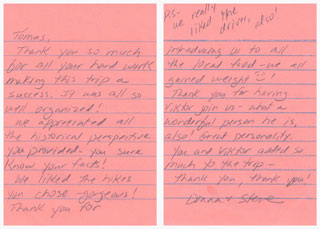 Tomas,
Thank you so much
for all your hard work
making this trip a
success. It was all so
well organized!
We appreciated all
the historical perspective
you provided - you sure
know your facts!
We liked the hikes
you chose - gorgeous!
Thank you for
P.S -
we really
liked the
driver, also!
introducing us to all
the local food - we all
gained weight!
Thank you for having
Viktor join us - what a
wonderful person he is,
also! Great personality.
You and Viktor added so
much to the trip -
thank you, thank you!
Steve